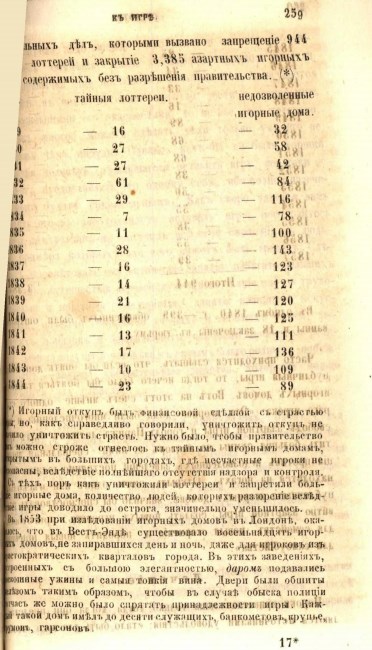 КЪ ИГРѢ 259
льныхъ дѣлъ, которыми вызвано запрещеніе 944
лоттерей и закрытіе 3,385 азартныхъ игорныхъ
содержимыхъ безъ разрѣшенія правительства. *)
тайныя лоттереи. недозволенные
игорные дома.
9 — 16 — 32
0 — 27 — 58
31 — 27 — 42
32 — 61 — 84
833 — 29 — 116
834 — 7 — 78
835 — 11 — 100
836 — 28 — 143
1837 — 16 — 123
1838 — 14 — 127
1839 — 21 — 120
1840 — 16 — 125
1841 — 13 — 111
1842 — 17 — 136
1843 — 10 — 109
1844 — 23 — 89
*) Игорный откупъ былъ финансовой сдѣлкой съ страстью
но, какъ справедливо говорили, уничтожить откупъ не
уничтожить страсть. Нужно было, чтобы правительство
можно строже отнеслось къ тайнымъ игорнымъ домамъ,
въ большихъ городахъ, гдѣ несчастные игроки не
вслѣдствіе полнѣйшаго отсутствія надзора и контроля.
тѣхъ поръ какъ уничтожили лоттереи и запретили боль-
игорные дома, количество людей которыхъ разореніе вслѣд-
игры доводило до острога, значительно уменьшилось.
Въ 1853 при изслѣдованіи игорныхъ домовъ въ Лондонѣ, ока-
что въ Вестъ-Эндѣ существовало восемнадцать игор-
домовъ, не запиравшихся день и ночь, даже для игроковъ изъ
кварталовъ города. Въ этихъ заведеніяхъ,
съ большою элегантностью, даромъ подавались
ужины и самыя тонкія вина. Двери были обшиты
такимъ образомъ, чтобы въ случаѣ обыска полиціи
же можно было спрятать принадлежности игры. Каж-
такой домъ имѣлъ до десяти служащихъ, банкометовъ, крупье,
гарсоновъ
17*